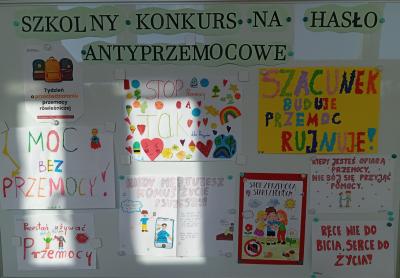 SZKOLNY KONKURS NA HASŁO
ANTYPRZEMOCOWE
Tydzień
o przeciwdziałaniu
przemocy
rówieśniczej
MOC
BEZ
PRZEMOCY!
Przestań używać
Przemocy
STOP
TAK
SZACUNEK
BUDUJE
PRZEMOC
RUJNUJE!
KIEDY JESTEŚ OFIARĄ
PRZEMOCY,
NIE BÓJ SIĘ PRZYJĄĆ
POMOCY.
RĘCE NIE DO
BICIA, SERCE DO
ŻYCIA!